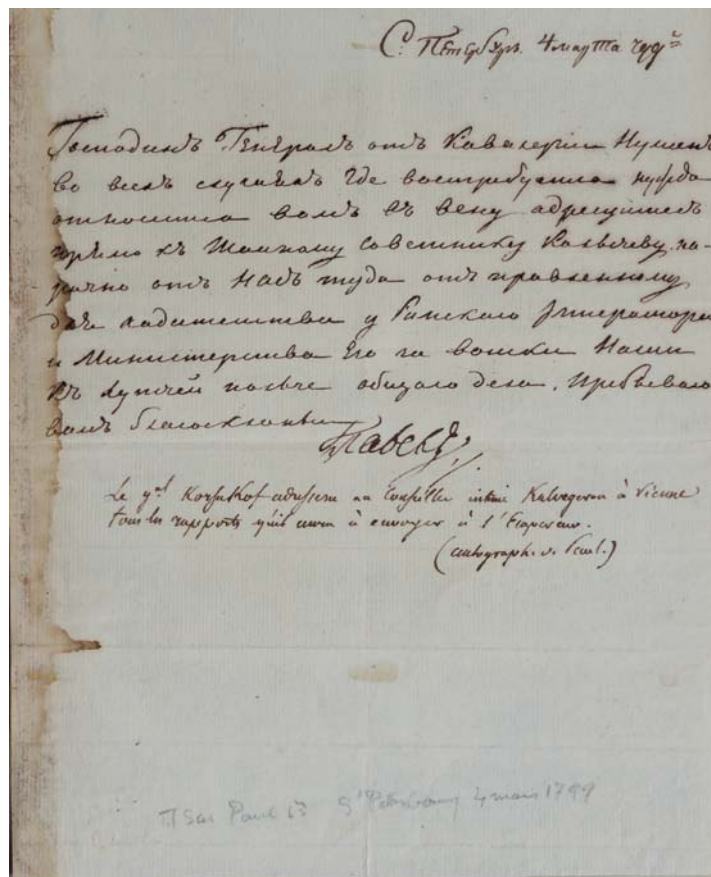 С: Петербургъ. 4 марта 799 г̃
Господинъ Генералъ отъ Кавалерiи Нумсенъ
во всехъ случаяхъ где востребуется нужда
относится вамъ въ вену адресуйтесь
прямо къ Тайному Советнику Колычеву на-
рочно отъ Насъ туда отправленному
для ходатетства у Римскаго Императора
и Министерства Его за воиски Наши
къ лутчей ползе общаго дела, Пребываю
вамъ благосклонны
Павелъ
Le gal Korsakof adressera au Conseiller intime à Vienne
tous les rapports qu'il aura à envoyer à l'Empereur.
(autograph. v. Paul.)
Tsar Paul St Petersbourg 4 mars 1799